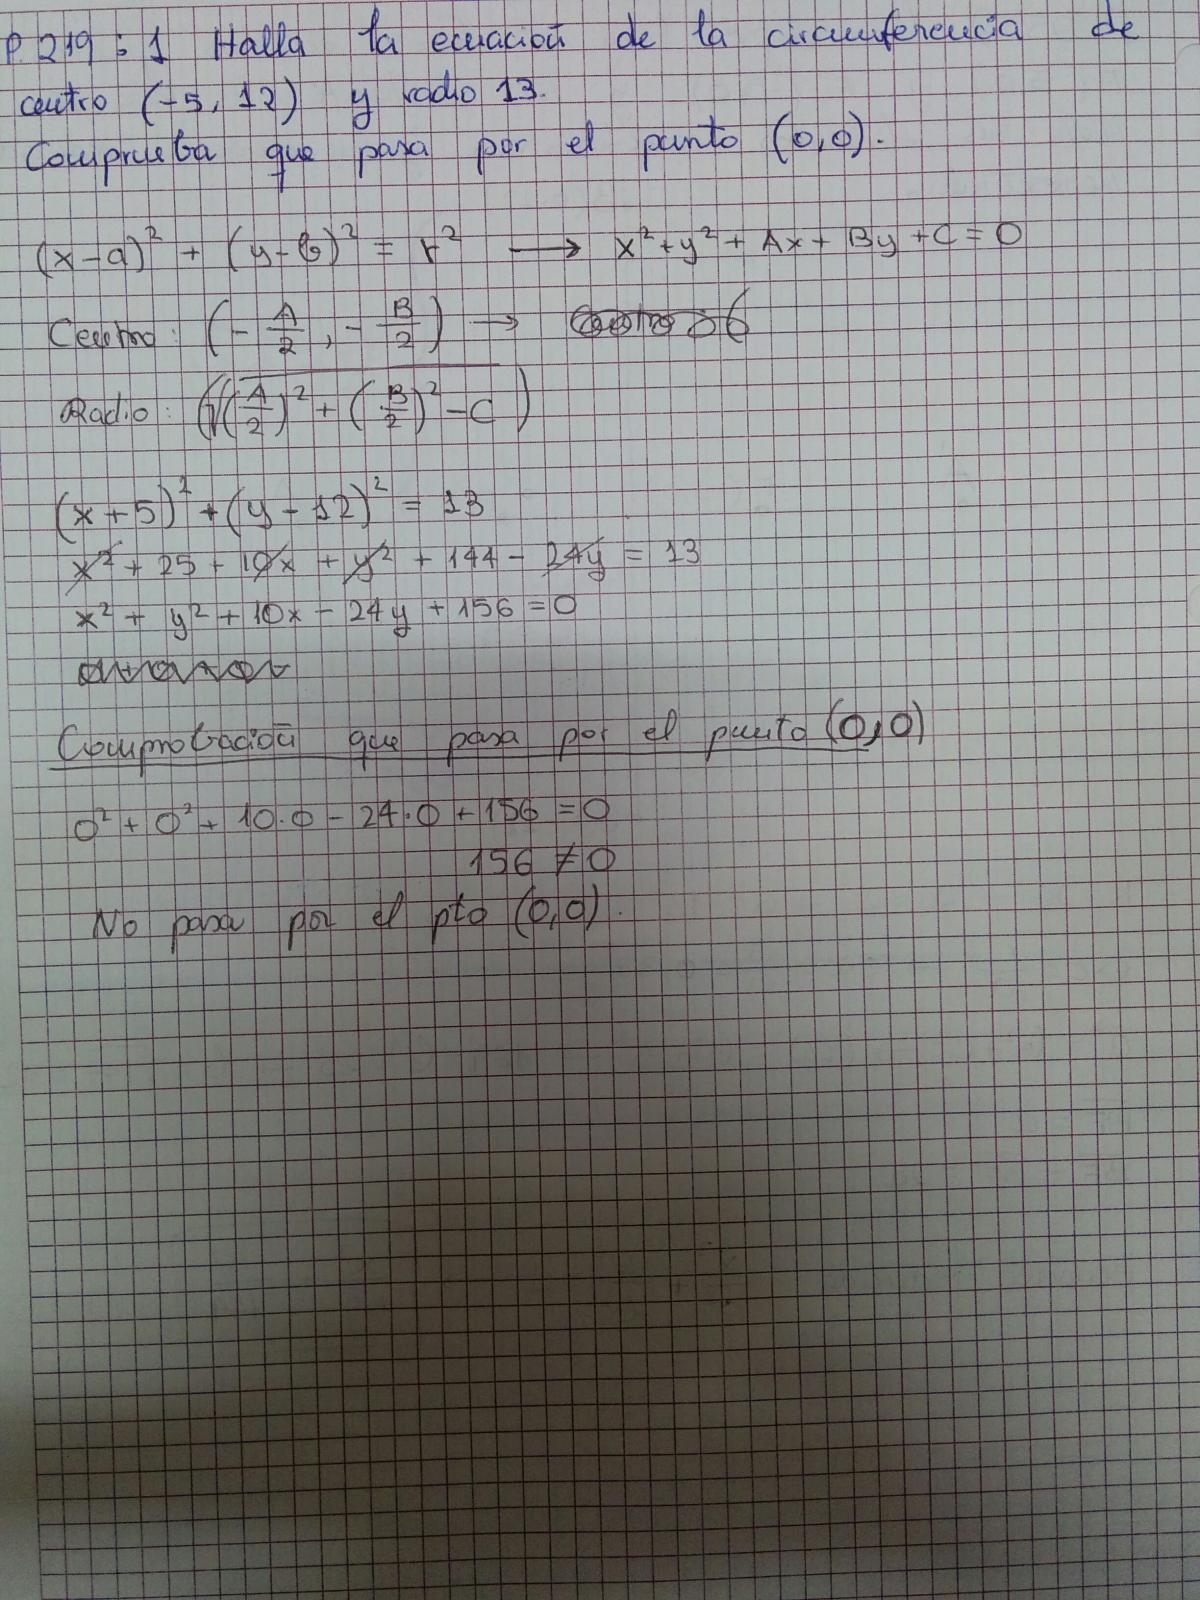 P. 219 : 1 Halla la ecuación de la circunferencia de
centro (-5, 12) y radio 13.
Comprueba que pasa por el punto (0,0).
(x-a)² + (y-b)² = r² → x² + y² + Ax + By + C = 0
Centro: (-A/2, -B/2) →
Radio: (√(A/2)² + (B/2)² - C)
(x+5)² + (y-12)² = 13
x² + 25 + 10x + y² + 144 - 24y = 13
x² + y² + 10x - 24y + 156 = 0
Comprobación que pasa por el punto (0,0)
0² + 0² + 10·0 - 24·0 + 156 = 0
156 ≠ 0
No pasa por el pto (0,0).